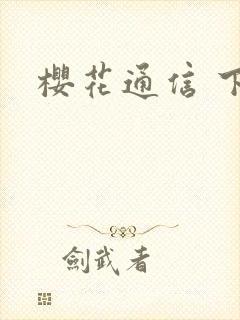 櫻花通信 下
劍武者